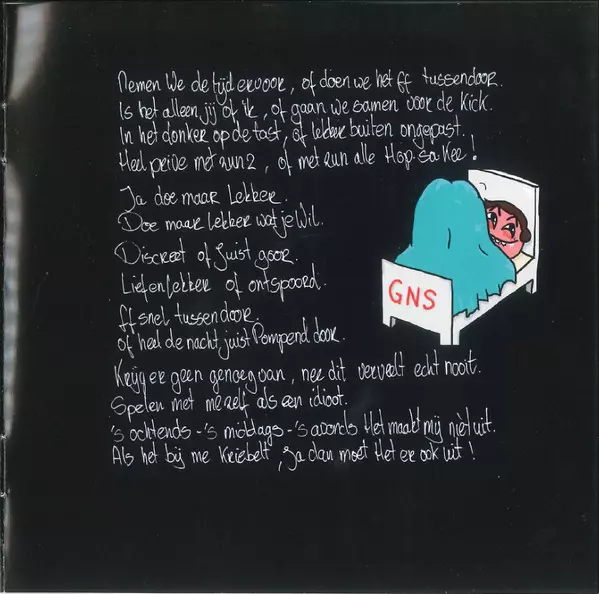 Nemen We de tijd ervoor, of doen we het ff tussendoor.
Is het alleen jij of ik, of gaan we samen voor de Kick.
In het donker op de tast, of lekker buiten ongepast.
Heel privé met zun 2, of met zun alle Hop-sa-Kee!
Ja doe maar Lekker.
Doe maar lekker wat je Wil.
Discreet of Juist goor.
Lief en Lekker of ontspoord.
ff snel tussendoor.
of heel de nacht, juist Pompend door.
Krijg er geen genoeg van, nee dit verveelt echt nooit.
Spelen met mezelf als een idioot.
's ochtends-'s middags-'s avonds Het maakt mij niet uit.
Als het bij me Kriebelt, Ja dan moet Het er ook uit!
GNS